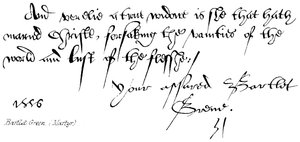 And verelie a trew widow is she that hath
maried Christe, forsaking the vanities of the
world and lust of the flesshe.
Your assured Bartlet
Grene.
1556
Bartlet Green (Martyr)